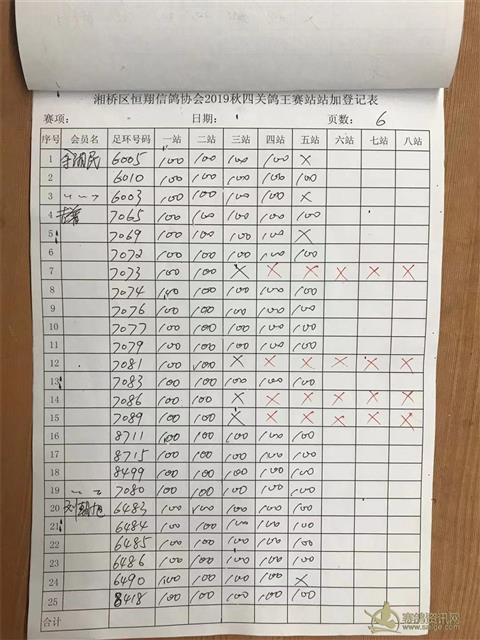 湘桥区恒翔信鸽协会2019秋四关鸽王赛站站加登记表
赛项： 日期： 页数： 6
序号 会员名 足环号码 一站 二站 三站 四站 五站 六站 七站 八站
1 6005 100 100 100 100 ×
2 6010 100 100 100 100 100
3 6003 100 100 100 100 ×
4 7065 100 100 100 100 100
5 7069 100 100 100 100 ×
6 7072 100 100 100 100 100
7 7073 100 100 × × × × × ×
8 7074 100 100 100 100 100
9 7076 100 100 100 100 100
10 7077 100 100 100 100 100
11 7079 100 100 100 100 100
12 7081 100 100 × × × × × ×
13 7083 100 100 100 100 100
14 7086 100 100 × × × × × ×
15 7089 100 100 × × × × × ×
16 8711 100 100 100 100 100
17 8715 100 100 100 100 100
18 8499 100 100 100 100 100
19 7080 100 100 100 100 100
20 6483 100 100 100 100 100
21 6484 100 100 100 100 100
22 6485 100 100 100 100 100
23 6486 100 100 100 100 100
24 6490 100 100 100 100 ×
25 8418 100 100 100 100 100
合计
赛鸽资讯网
www.saige.com